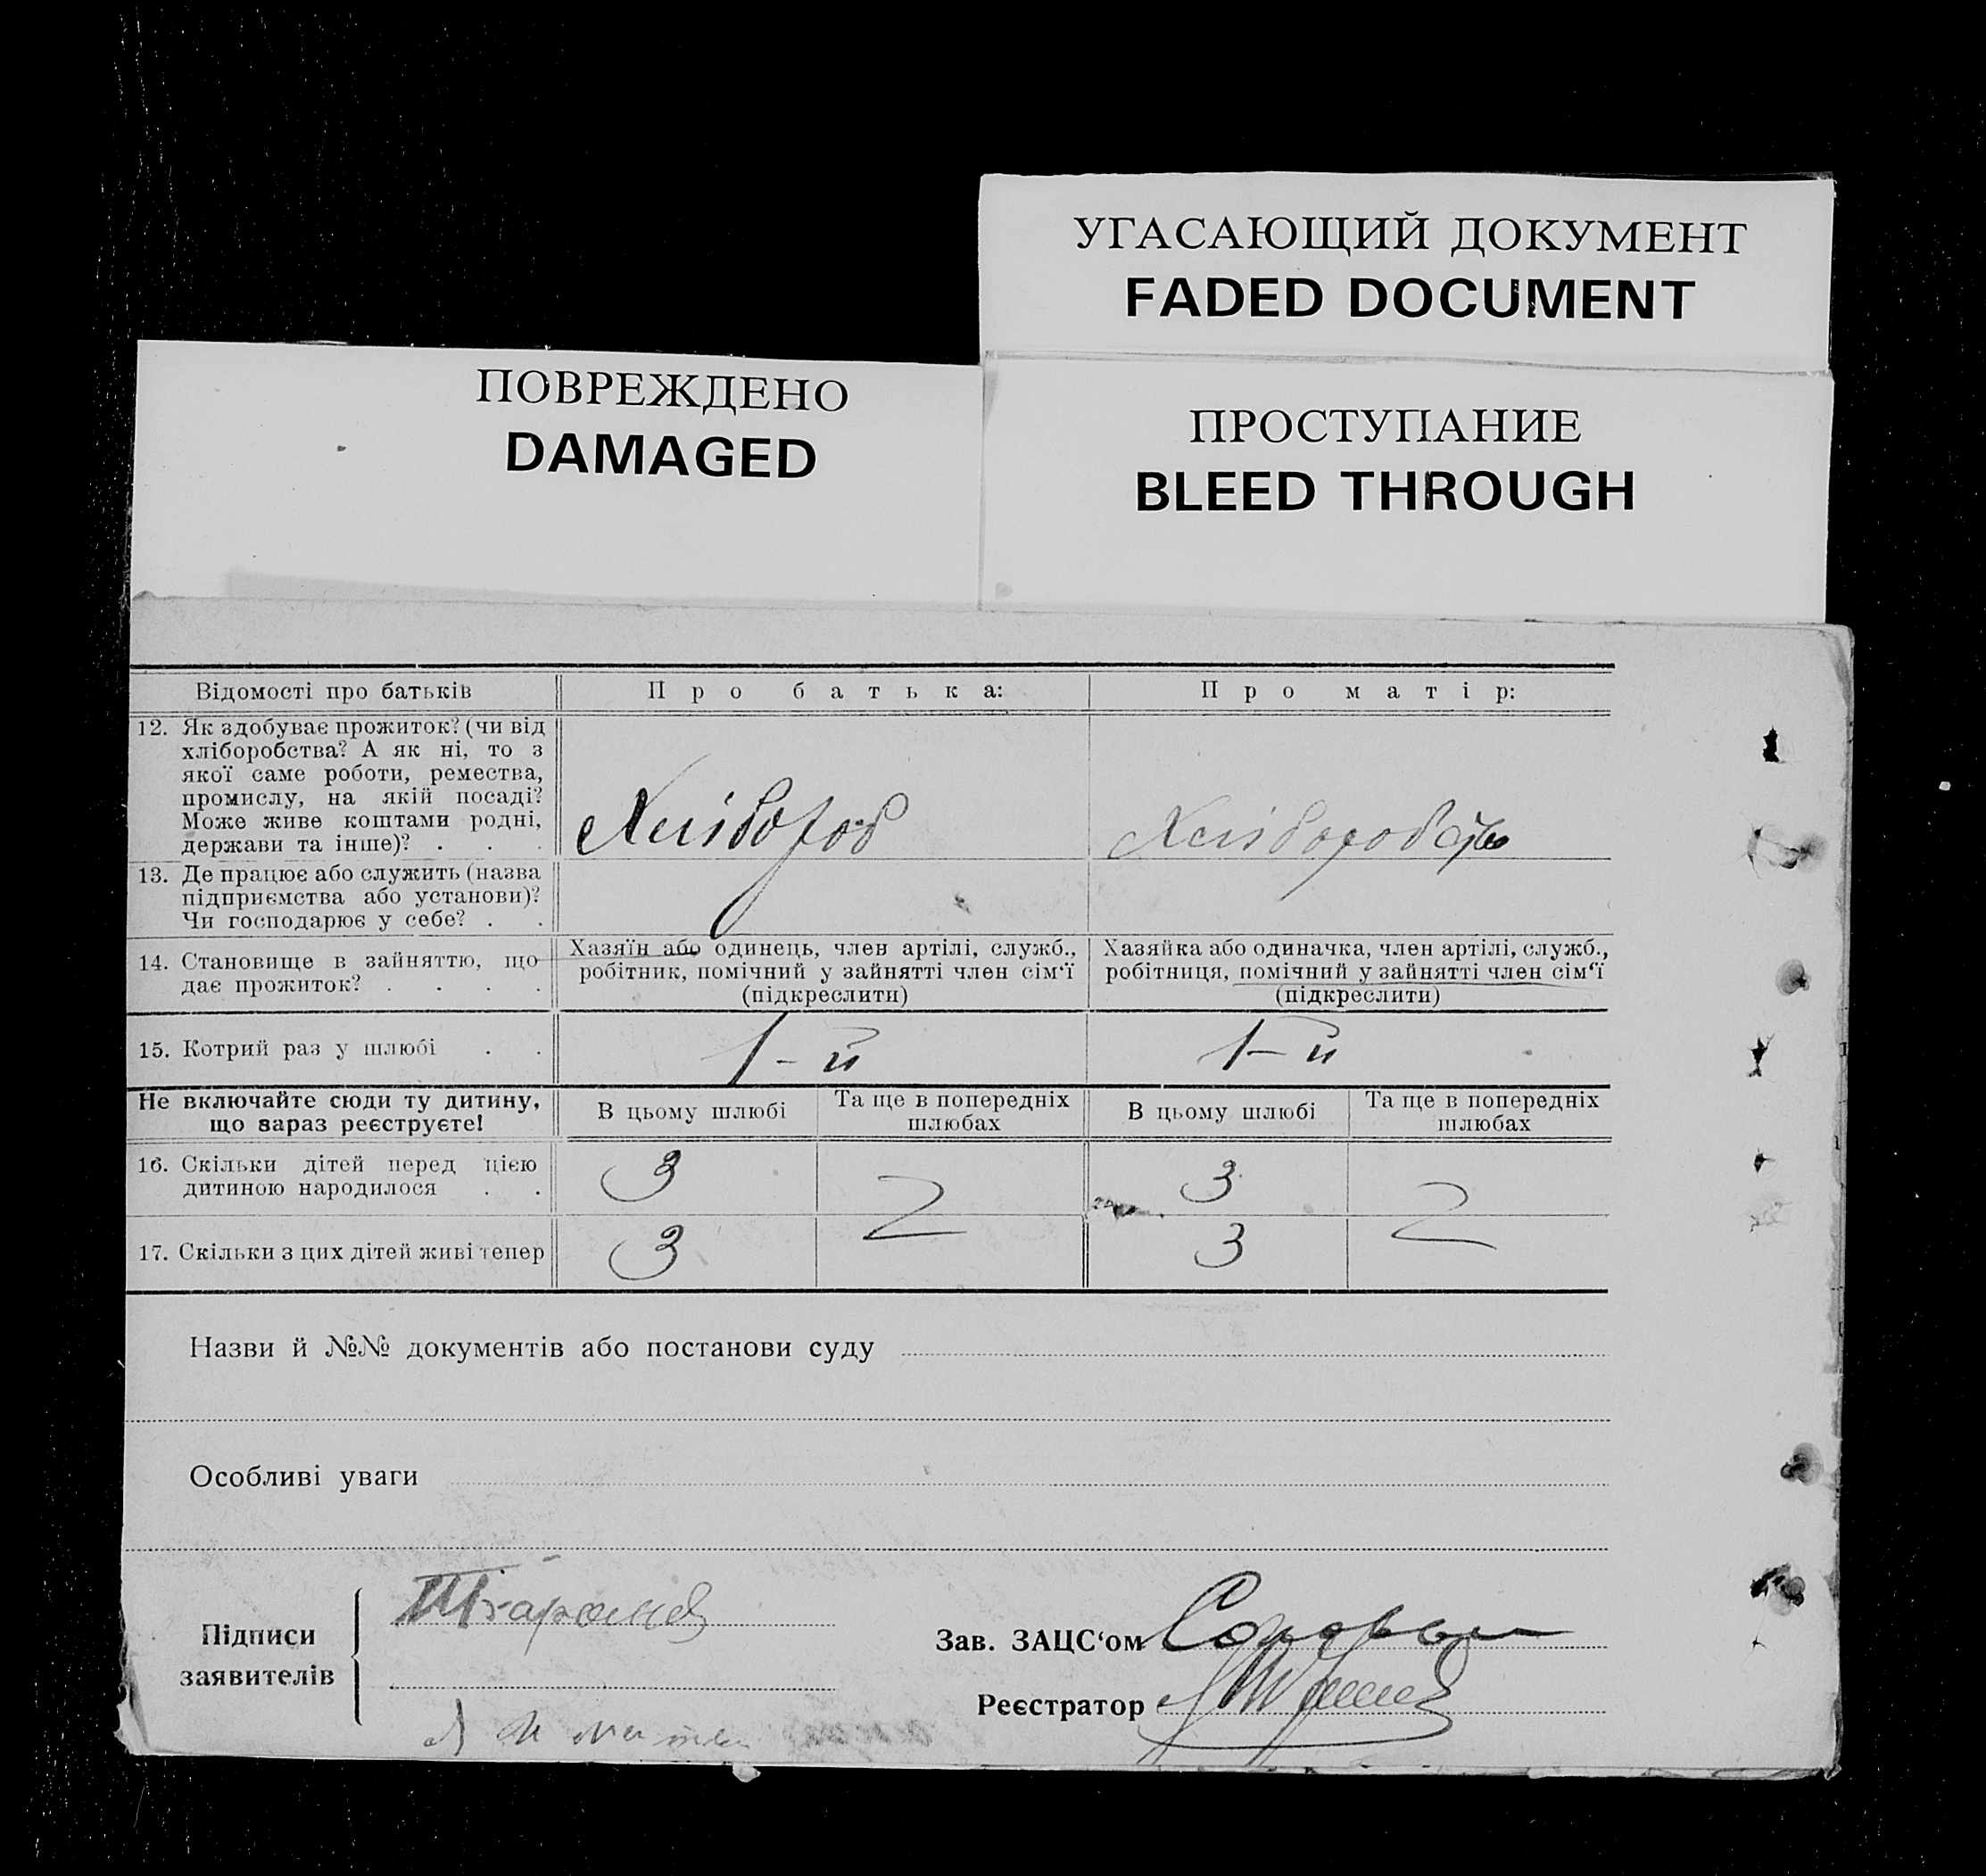 УГАСАЮЩИЙ ДОКУМЕНТ
FADED DOCUMENT
ПОВРЕЖДЕНО
DAMAGED
ПРОСТУПАНИЕ
BLEED THROUGH
Відомості про батьків
Про батька:
Про матір:
12. Як здобуває прожиток? (чи від
хліборобства? А як ні, то з
якої саме роботи, ремества,
промислу, на якій посаді?
Може живе коштами родні,
держави та інше)? . . .
Хлібороб
Хліборобство
13. Де працює або служить (назва
підприємства або установи)?
Чи господарює у себе? . .
14. Становище в зайняттю, що
дає прожиток? . . . .
Хазяїн або одинець, член артілі, служб.,
робітник, помічний у зайнятті член сім'ї
(підкреслити)
Хазяйка або одиначка, член артілі, служб.,
робітниця, помічний у зайнятті член сім'ї
(підкреслити)
15. Котрий раз у шлюбі . .
1-й
1-й
Не включайте сюди ту дитину,
що зараз реєструєте!
В цьому шлюбі
Та ще в попередніх
шлюбах
В цьому шлюбі
Та ще в попередніх
шлюбах
16. Скільки дітей перед цією
дитиною народилося . .
3
3
17. Скільки з цих дітей живі тепер
3
3
Назви й №№ документів або постанови суду
Особливі уваги
Підписи
заявителів
Зав. ЗАЦС'ом
Реєстратор